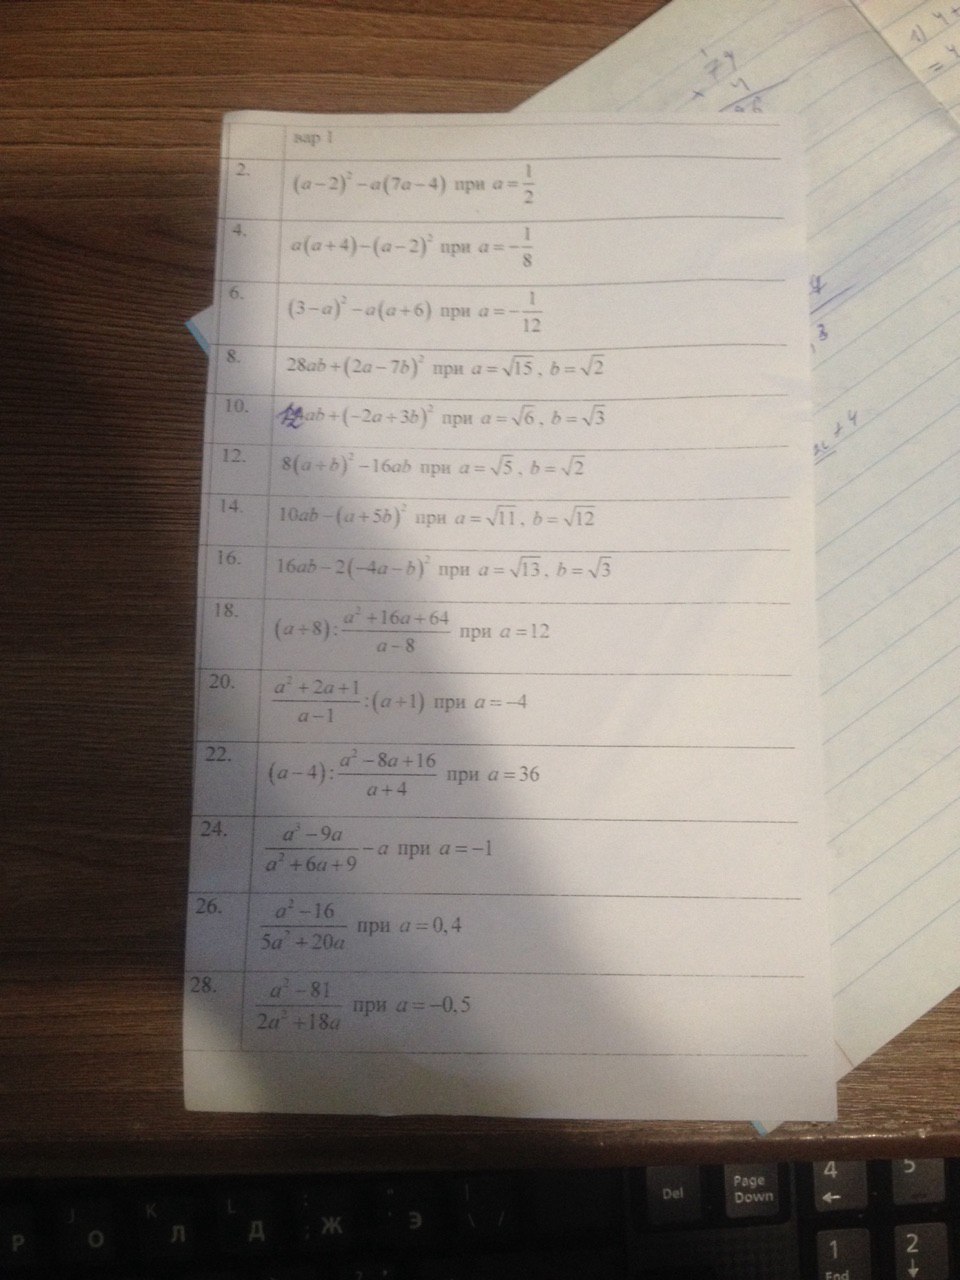 вар 1
2. (a−2)² −a(7a−4) при a=1/2
4. a(a+4)−(a−2)² при a=−1/8
6. (3−a)² −a(a+6) при a=−1/12
8. 28ab+(2a−7b)² при a=√15, b=√2
10. 12ab+(−2a+3b)² при a=√6, b=√3
12. 8(a+b)² −16ab при a=√5, b=√2
14. 10ab−(a+5b)² при a=√11, b=√12
16. 16ab−2(−4a−b)² при a=√13, b=√3
18. (a+8):(a²+16a+64)/(a−8) при a=12
20. (a²+2a+1)/(a−1):(a+1) при a=−4
22. (a−4):(a²−8a+16)/(a+4) при a=36
24. (a³−9a)/(a²+6a+9)−a при a=−1
26. (a²−16)/(5a²+20a) при a=0,4
28. (a²−81)/(2a²+18a) при a=−0,5
Del
Page Down
4 ←
5
J K L
Р О Л Д ; Ж Э \ /
1 End
2 ↓